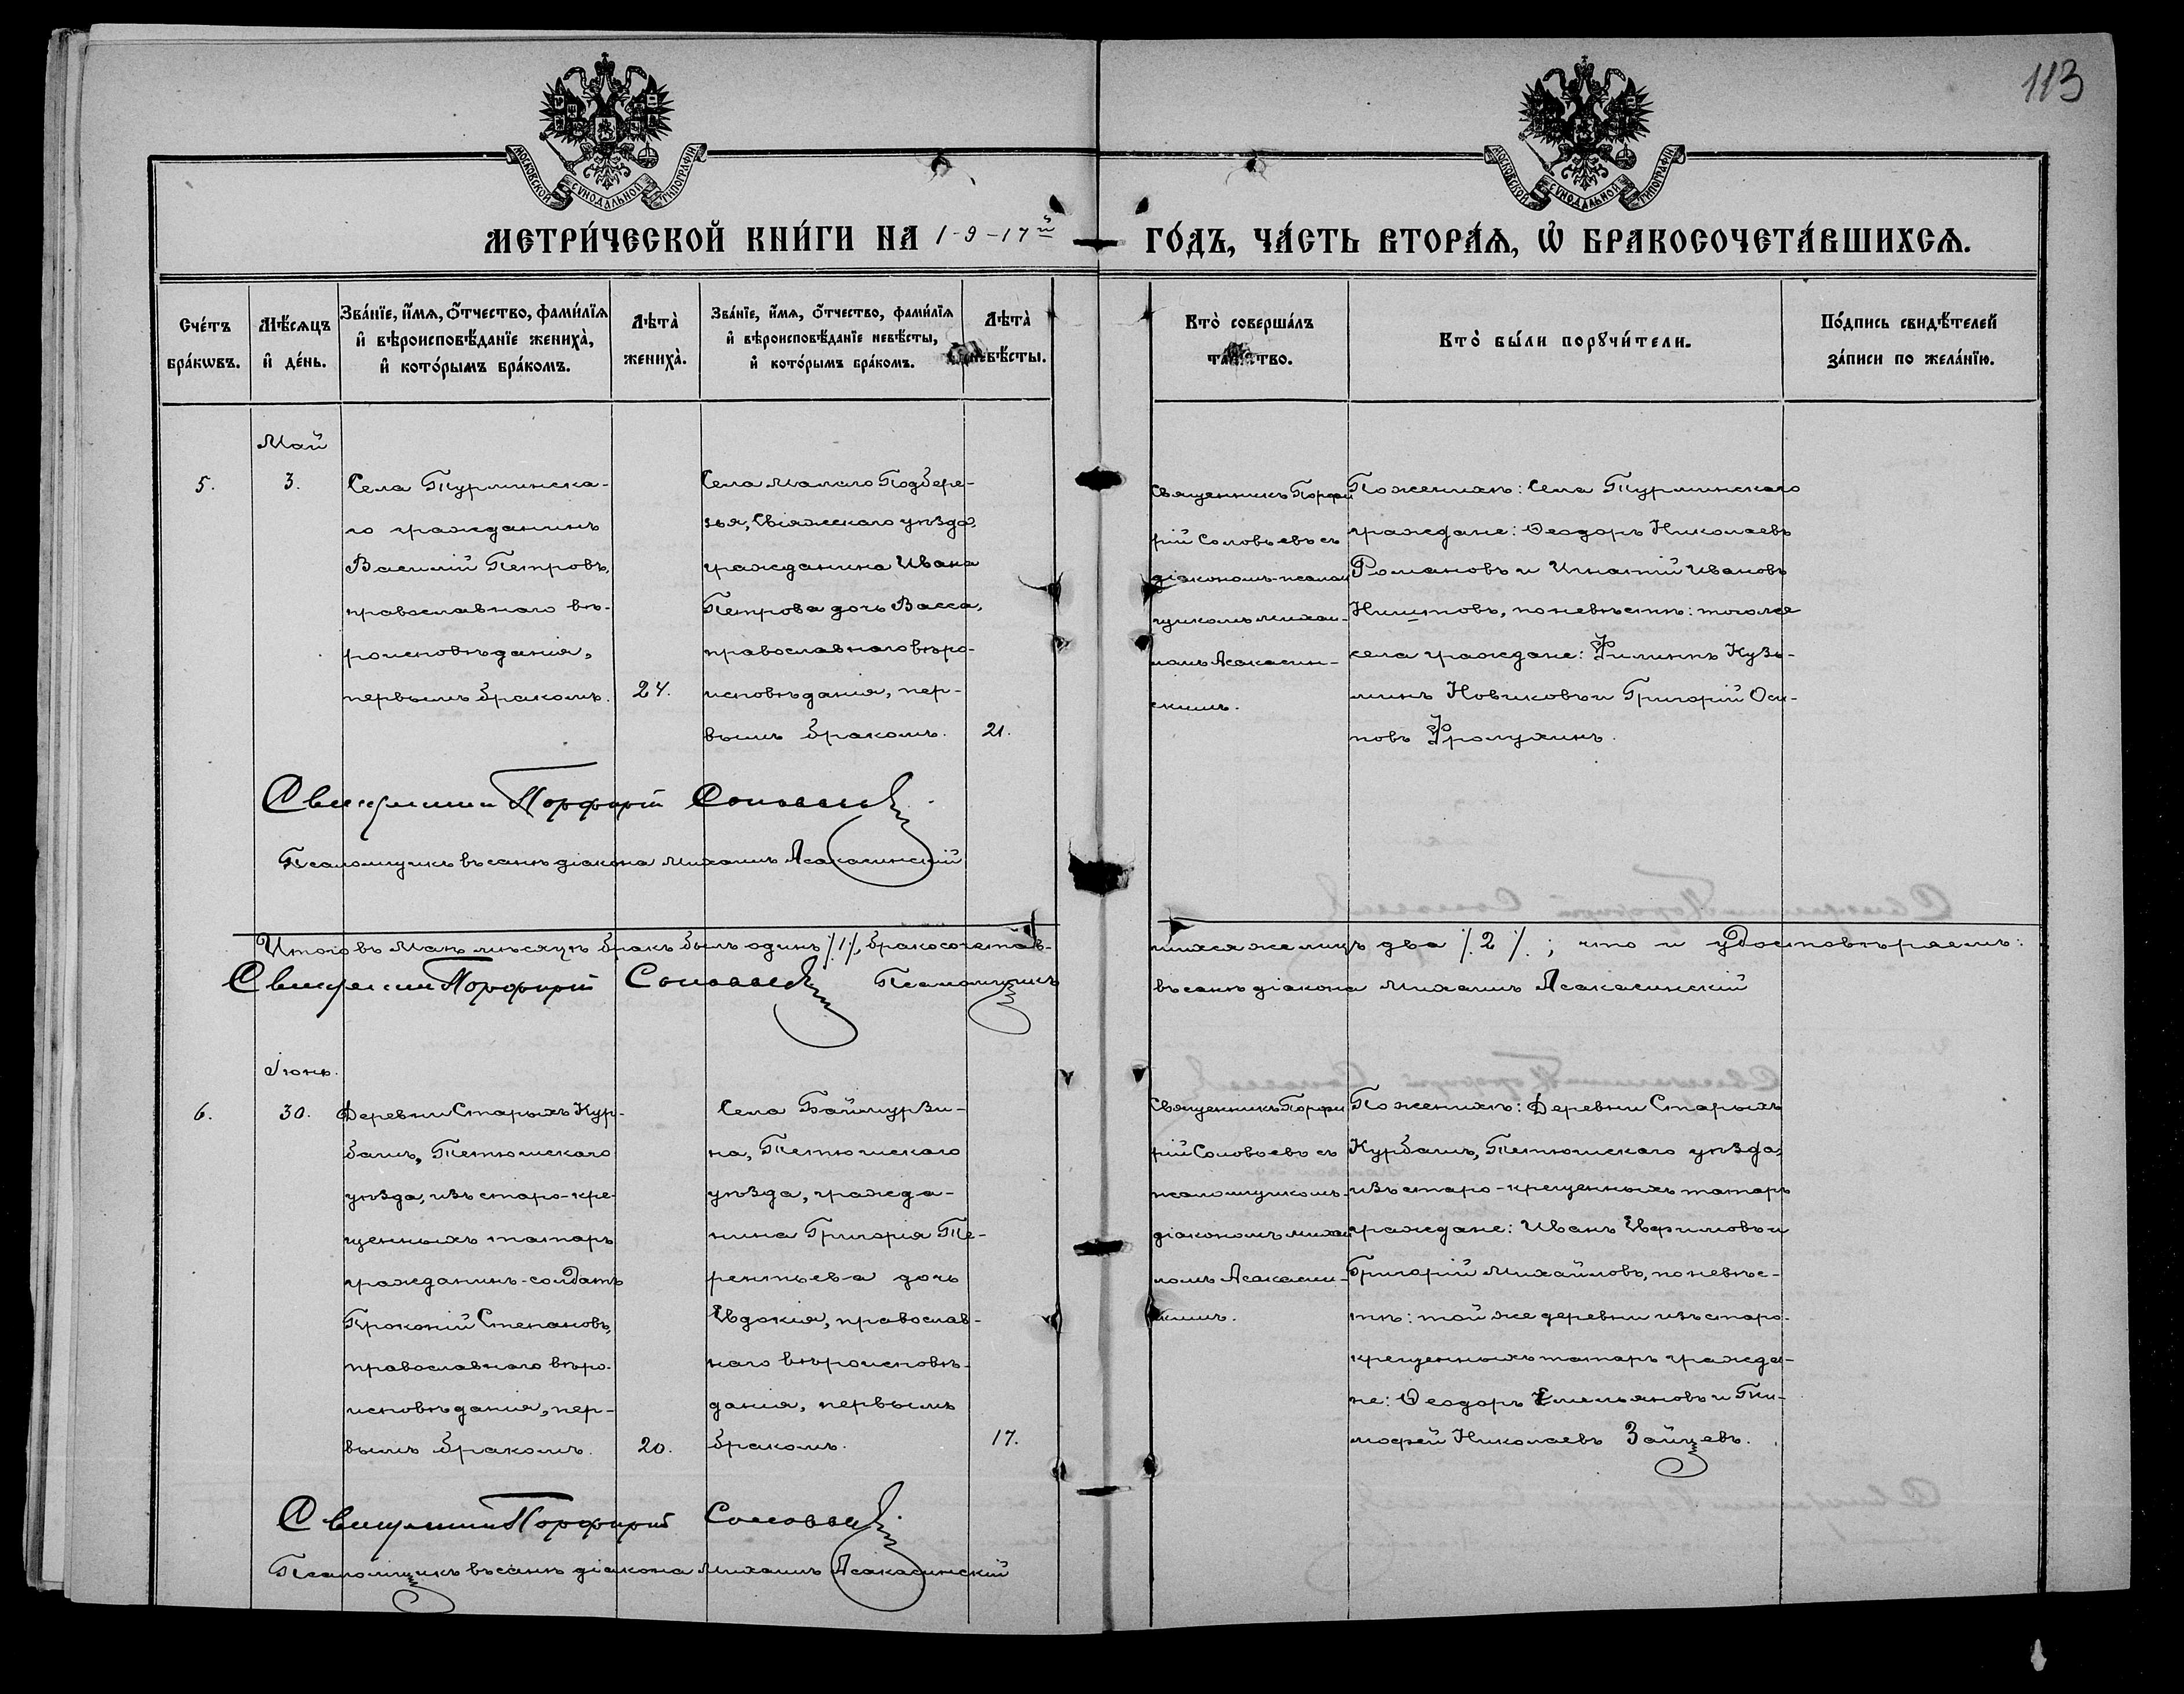 113
МОСКОВСКОЙ СѴНОДАЛЬНОЙ ТИПОГРАФІИ
МОСКОВСКОЙ СѴНОДАЛЬНОЙ ТИПОГРАФІИ
МЕТРИ́ЧЕСКОЙ КНИ́ГИ НА 1-9-17й ГО́ДЪ, ЧА́СТЬ ВТОРА́Ѧ, Ѡ҆ БРАКОСОЧЕТА́ВШИХСѦ.
Сче́тъ
бра́кѡвъ.
Мѣ́сѧцъ
и҆ де́нь.
Зва́нїе, и҆́мѧ, ѻ҆́тчество, фами́лїѧ
и҆ вѣроисповѣ́данїе жениха̀,
и҆ кото́рымъ бра́комъ.
Лѣта̀
жениха̀.
Зва́нїе, и҆́мѧ, ѻ҆́тчество, фами́лїѧ
и҆ вѣроисповѣ́данїе невѣ́сты,
и҆ кото́рымъ бра́комъ.
Лѣта̀
невѣ́сты.
Кто̀ соверша́лъ
таинство.
Кто̀ бы́ли порꙋчи́тели.
По́дпись свидѣ́телей
за́писи по жела́нїю.
Май
5.
3.
Села Турминска-
го гражданинъ
Василій Петровъ,
православнаго вѣ-
роисповѣданія,
первымъ бракомъ.
24.
Села Малаго Подбере-
зья, Свіяжскаго уѣзда,
гражданина Ивана
Петрова дочь Васса,
православнаго вѣро-
исповѣданія, пер-
вымъ бракомъ.
21.
Священникъ Порфи
рій Соловьевъ съ
діакономъ-псалом
щикомъ Михаи-
ломъ Асакасин-
скимъ.
По женихѣ: Села Турминскаго
граждане: Ѳеодоръ Николаевъ
Романовъ и Игнатій Ивановъ
по невѣстѣ: тогоже
села граждане: Филиппъ Кузь-
минъ Новиковъ и Григорій Оси-
повъ Фролухинъ.
Священникъ Порфирій Соловьевъ
Псаломщикъ въ санѣ діакона Михаилъ Асакасинскій
Итого въ Маѣ мѣсяцѣ бракъ былъ одинъ /.1./, бракосочетав-
шихся же лицъ два /.2./.; что и удостовѣряемъ:
Священникъ Порфирій Соловьевъ Псаломщикъ
въ санѣ діакона Михаилъ Асакасинскій
Іюнь.
6.
30.
Деревни Старыхъ Кур-
башъ, Тетюшскаго
уѣзда, изъ старо-кре-
щенныхъ татаръ
гражданинъ-солдатъ
Прокопій Степановъ,
православнаго вѣро-
исповѣданія, пер-
вымъ бракомъ.
20.
Села Баймурзи-
на, Тетюшскаго
уѣзда, гражда-
нина Григорія Те-
рентьева дочь
Евдокія, православ-
наго вѣроисповѣ-
данія, первымъ
бракомъ.
17.
Священникъ Порфи
рій Соловьевъ съ
псаломщикомъ-
діакономъ Михаи
ломъ Асакасин-
скимъ.
По женихѣ: Деревни Старыхъ
Курбашъ, Тетюшскаго уѣзда,
изъ старо-крещенныхъ татаръ
граждане: Иванъ Ефимовъ и
Григорій Михайловъ, по невѣс-
тѣ: той же деревни изъ старо-
крещенныхъ татаръ гражда-
не: Ѳеодоръ Емельяновъ и Ти-
мофей Николаевъ Зайцевъ.
Священникъ Порфирій Соловьевъ
Псаломщикъ въ санѣ діакона Михаилъ Асакасинскій